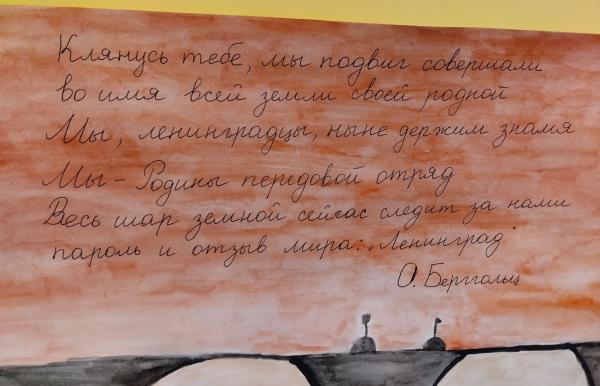 Клянусь тебе, мы подвиг совершали
во имя всей земли своей родной
Мы, ленинградцы, ныне держим знамя
Мы - Родины передовой отряд
Весь шар земной сейчас следит за нами
пароль и отзыв мира: „Ленинград"
О. Берггольц